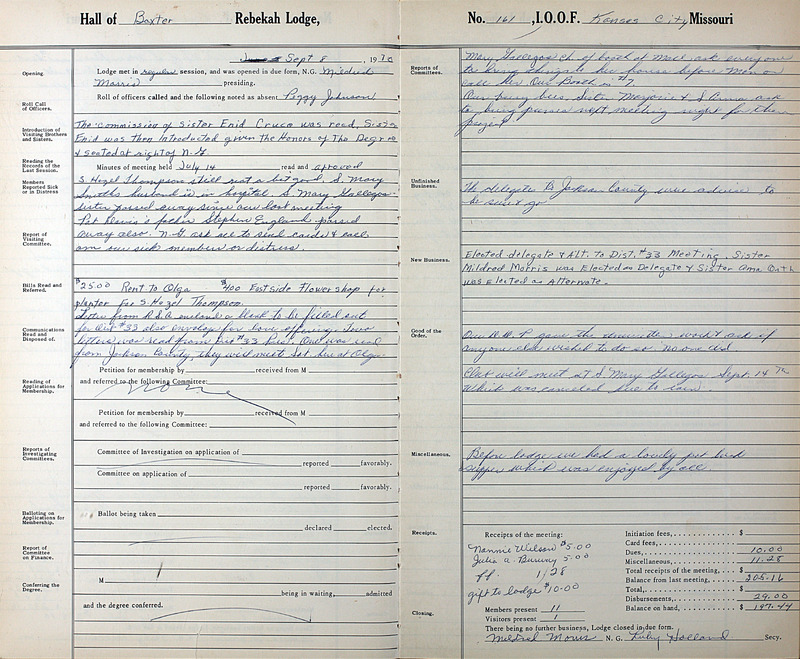 Hall of Baxter Rebekah Lodge,
Sept 8, 1970
Opening.
Lodge met in regular session, and was opened in due form, N.G. Mildred
Morris presiding.
Roll Call of Officers.
Roll of officers called and the following noted as absent Peggy Johnson
Introduction of Visiting Brothers and Sisters.
The commission of Sister Enid Cruce was read, Sister
Enid was then introducted given the Honors of The Degree
& seated at right of N.G
Reading the Records of the Last Session.
Minutes of meeting held July 14 read and aproved
Members Reported Sick or in Distress
S. Hazel Thompson still not a bit good, S. Mary
Smiths husband is in hospital. S. Mary Gallegos
sister passed away since our last meeting
Pat Lewis's father Stephen England passed
away also. N.G ask us to send cards & call
on our sick members or distress.
Report of Visiting Committee.
Bills Read and Referred.
$25.00 Rent to Olga $4.00 Eastside Flower shop for
planter for S. Hazel Thompson.
Communications Read and Disposed of.
Letter from R.S.A. enclosed a blank to be filled out
for Dist #33 also envelop for love offering. Two
letters was read from Dist #33 Pres. One was read
from Jackson County, they will meet Oct. here at Olga
Reading of Applications for Membership.
Petition for membership by received from M
and referred to the following Committee:
none
Petition for membership by received from M
and referred to the following Committee:
Reports of Investigating Committees.
Committee of Investigation on application of
reported favorably.
Committee on application of
reported favorably.
Balloting on Applications for Membership.
Ballot being taken
declared elected.
Report of Committee on Finance.
Conferring the Degree.
M
being in waiting, admitted
and the degree conferred.
No. 161, I.O.O.F. Kansas City Missouri
Reports of Committees.
Mary Gallegos Ch. of booth of Mall ask everyone
to bring things to her house before Mon or
call her. Our Booth is #7
Our penny bees, Sister Marjorie & S Anna ask
to bring pennies next meeting night for their
project
Unfinished Business.
The delegates to Jackson County were advise to
be sure & go
New Business.
Elected delegate & Alt. to Dist. #33 Meeting, Sister
Mildred Morris was Elected as Delegate & Sister Anna
was Elected as Alternate.
Good of the Order.
Our D.D.P gave the unwritten work & ask if
anyone else wished to do so no one did
Club will meet at S Mary Gallegos Sept. 14 Th
Which was canceled due to rain.
Miscellaneous.
Before lodge we had a lovely pot luck
supper which was enjoyed by all.
Receipts.
Receipts of the meeting:
Nannie Wilson $5.00
Julia A. 5.00
1.28
gift to lodge $10.00
Initiation fees, $
Card fees,
Dues, 10.00
Miscellaneous, 11.28
Total receipts of the meeting, $
Balance from last meeting, 205.16
Total, $
Disbursements, 29.00
Balance on hand, $ 197.44
Members present 11
Visitors present 1
Closing.
There being no further business, Lodge closed in due form.
Mildred Morris N. G. Ruby Holland Secy.